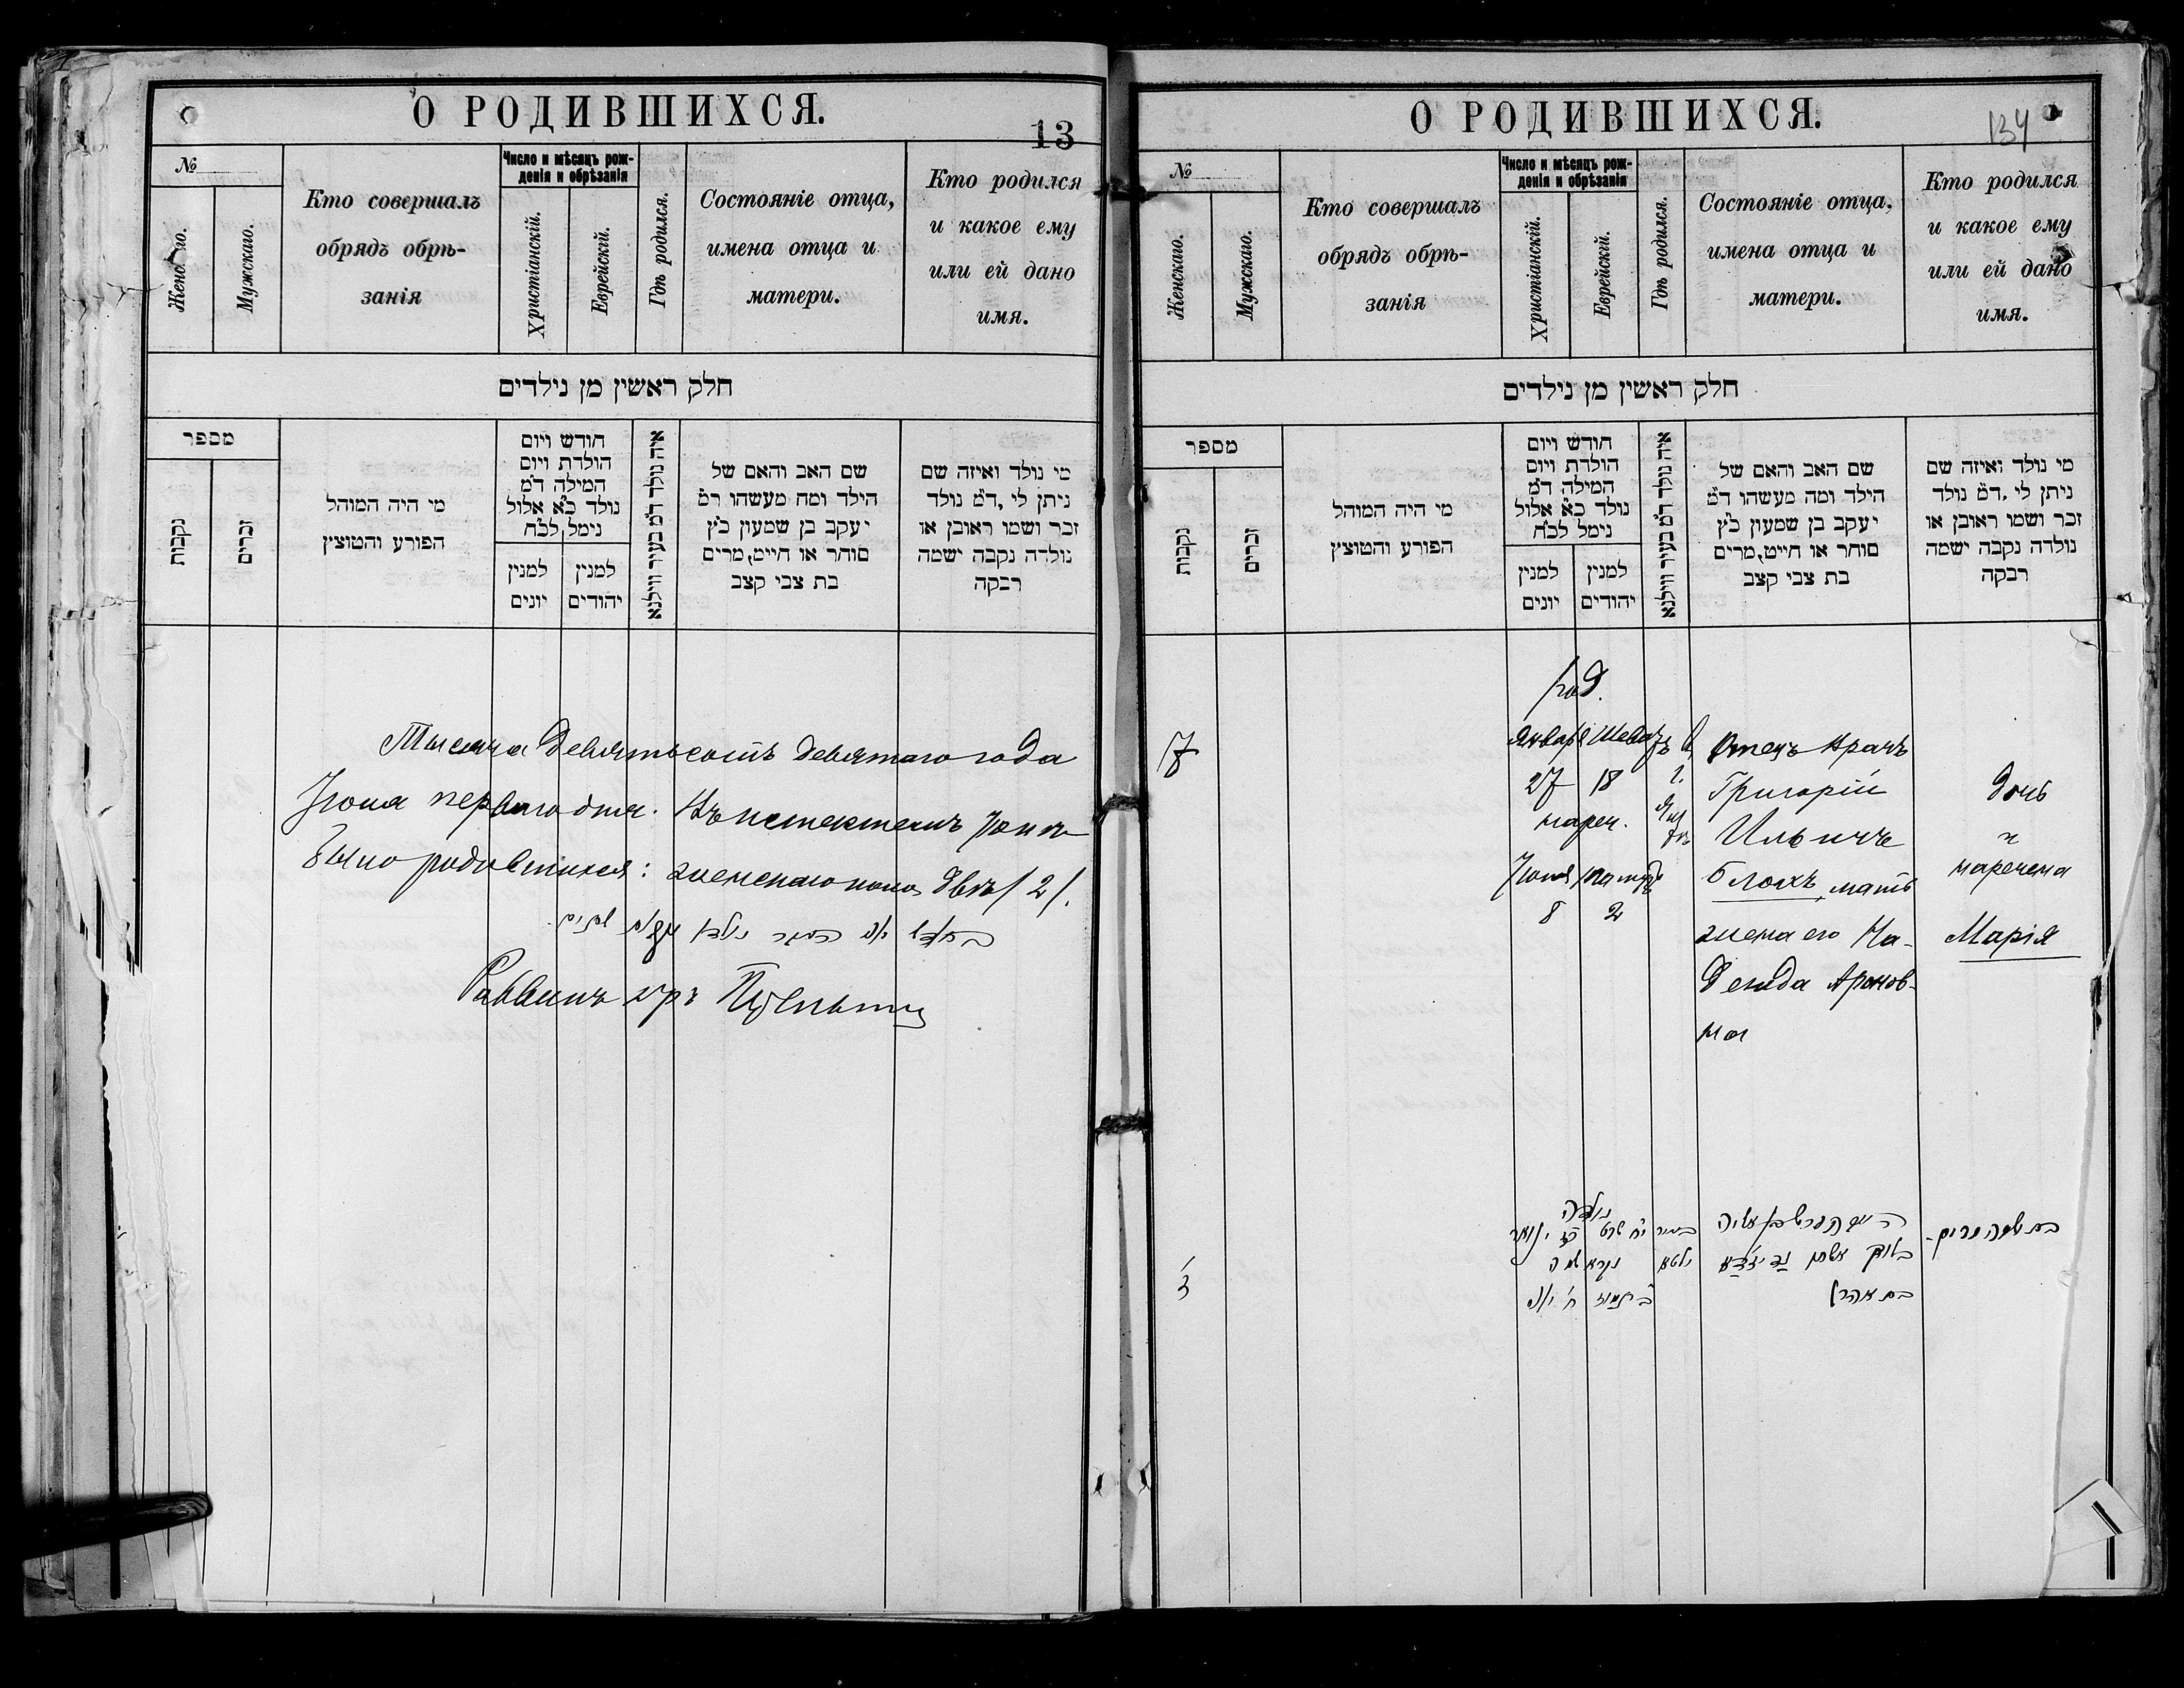 О РОДИВШИХСЯ.
13
№
Женскаго.
Мужскаго.
Кто совершалъ
обрядъ обрѣ-
занія
Число и мѣсяцъ рож-
денія и обрѣзанія
Христіанскій.
Еврейскій.
Гдѣ родился.
Состояніе отца,
имена отца и
матери.
Кто родился
и какое ему
или ей дано
имя.
חלק ראשין מן נילדים
מספר
נקבות
זכרים
מי היה המוהל
הפורע והמוצץ
חודש ויום
הולדת ויום
המילה דמ
נולד כא אלול
נימל לכח
למנין
יונים
למנין
יהודים
איה נולד דמ בעיר ווילנא
שם האב והאם של
הילד ומה מעשהו דמ
יעקב בן שמעון כץ
סוחר או חייט, מרים
בת צבי קצב
מי נולד ואיזה שם
ניתן לו, דמ נולד
זכר ושמו ראובן או
נולדה נקבה ישמה
רבקה
Тысяча девятьсотъ девятаго года
Іюня перваго дня. Въ истекшемъ
было родившихся: женскаго пола двѣ /2/.
Раввинъ
О РОДИВШИХСЯ.
134
№
Женскаго.
Мужскаго.
Кто совершалъ
обрядъ обрѣ-
занія
Число и мѣсяцъ рож-
денія и обрѣзанія
Христіанскій.
Еврейскій.
Гдѣ родился.
Состояніе отца,
имена отца и
матери.
Кто родился
и какое ему
или ей дано
имя.
חלק ראשין מן נילדים
מספר
נקבות
זכרים
מי היה המוהל
הפורע והמוצץ
חודש ויום
הולדת ויום
המילה דמ
נולד כא אלול
נימל לכח
למנין
יונים
למנין
יהודים
איה נולד דמ בעיר ווילנא
שם האב והאם של
הילד ומה מעשהו דמ
יעקב בן שמעון כץ
סוחר או חייט, מרים
בת צבי קצב
מי נולד ואיזה שם
ניתן לו, דמ נולד
זכר ושמו ראובן או
נולדה נקבה ישמה
רבקה
род.
7
Января Шевать
27 18
нареч.
Іюня
8 2
въ
г.
Ял
тѣ
Отецъ врачъ
Григорій
Ильичъ
Блохъ, мать
жена его На-
дежда Аронов-
на
дочь
и
наречена
Марія
נולדה
י״ח שבט כ״ז ינואר
נקרא שמה
ב׳ תמוז ח׳ יוני
בעיר
ילטא
בלוך אשתו נדיעזדא
בת אהרן
בת שמה מרים